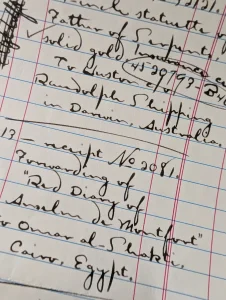 statuette of
Patten of Serpent,
solid gold, Insurance
To Customer c/o
Rundolph Shipping
in Darwin, Australia.
13 receipt No 2081,
Forwarding of
"Red Diary of
Anselm de Montfort"
Omar al-Shakti,
Cairo, Egypt,